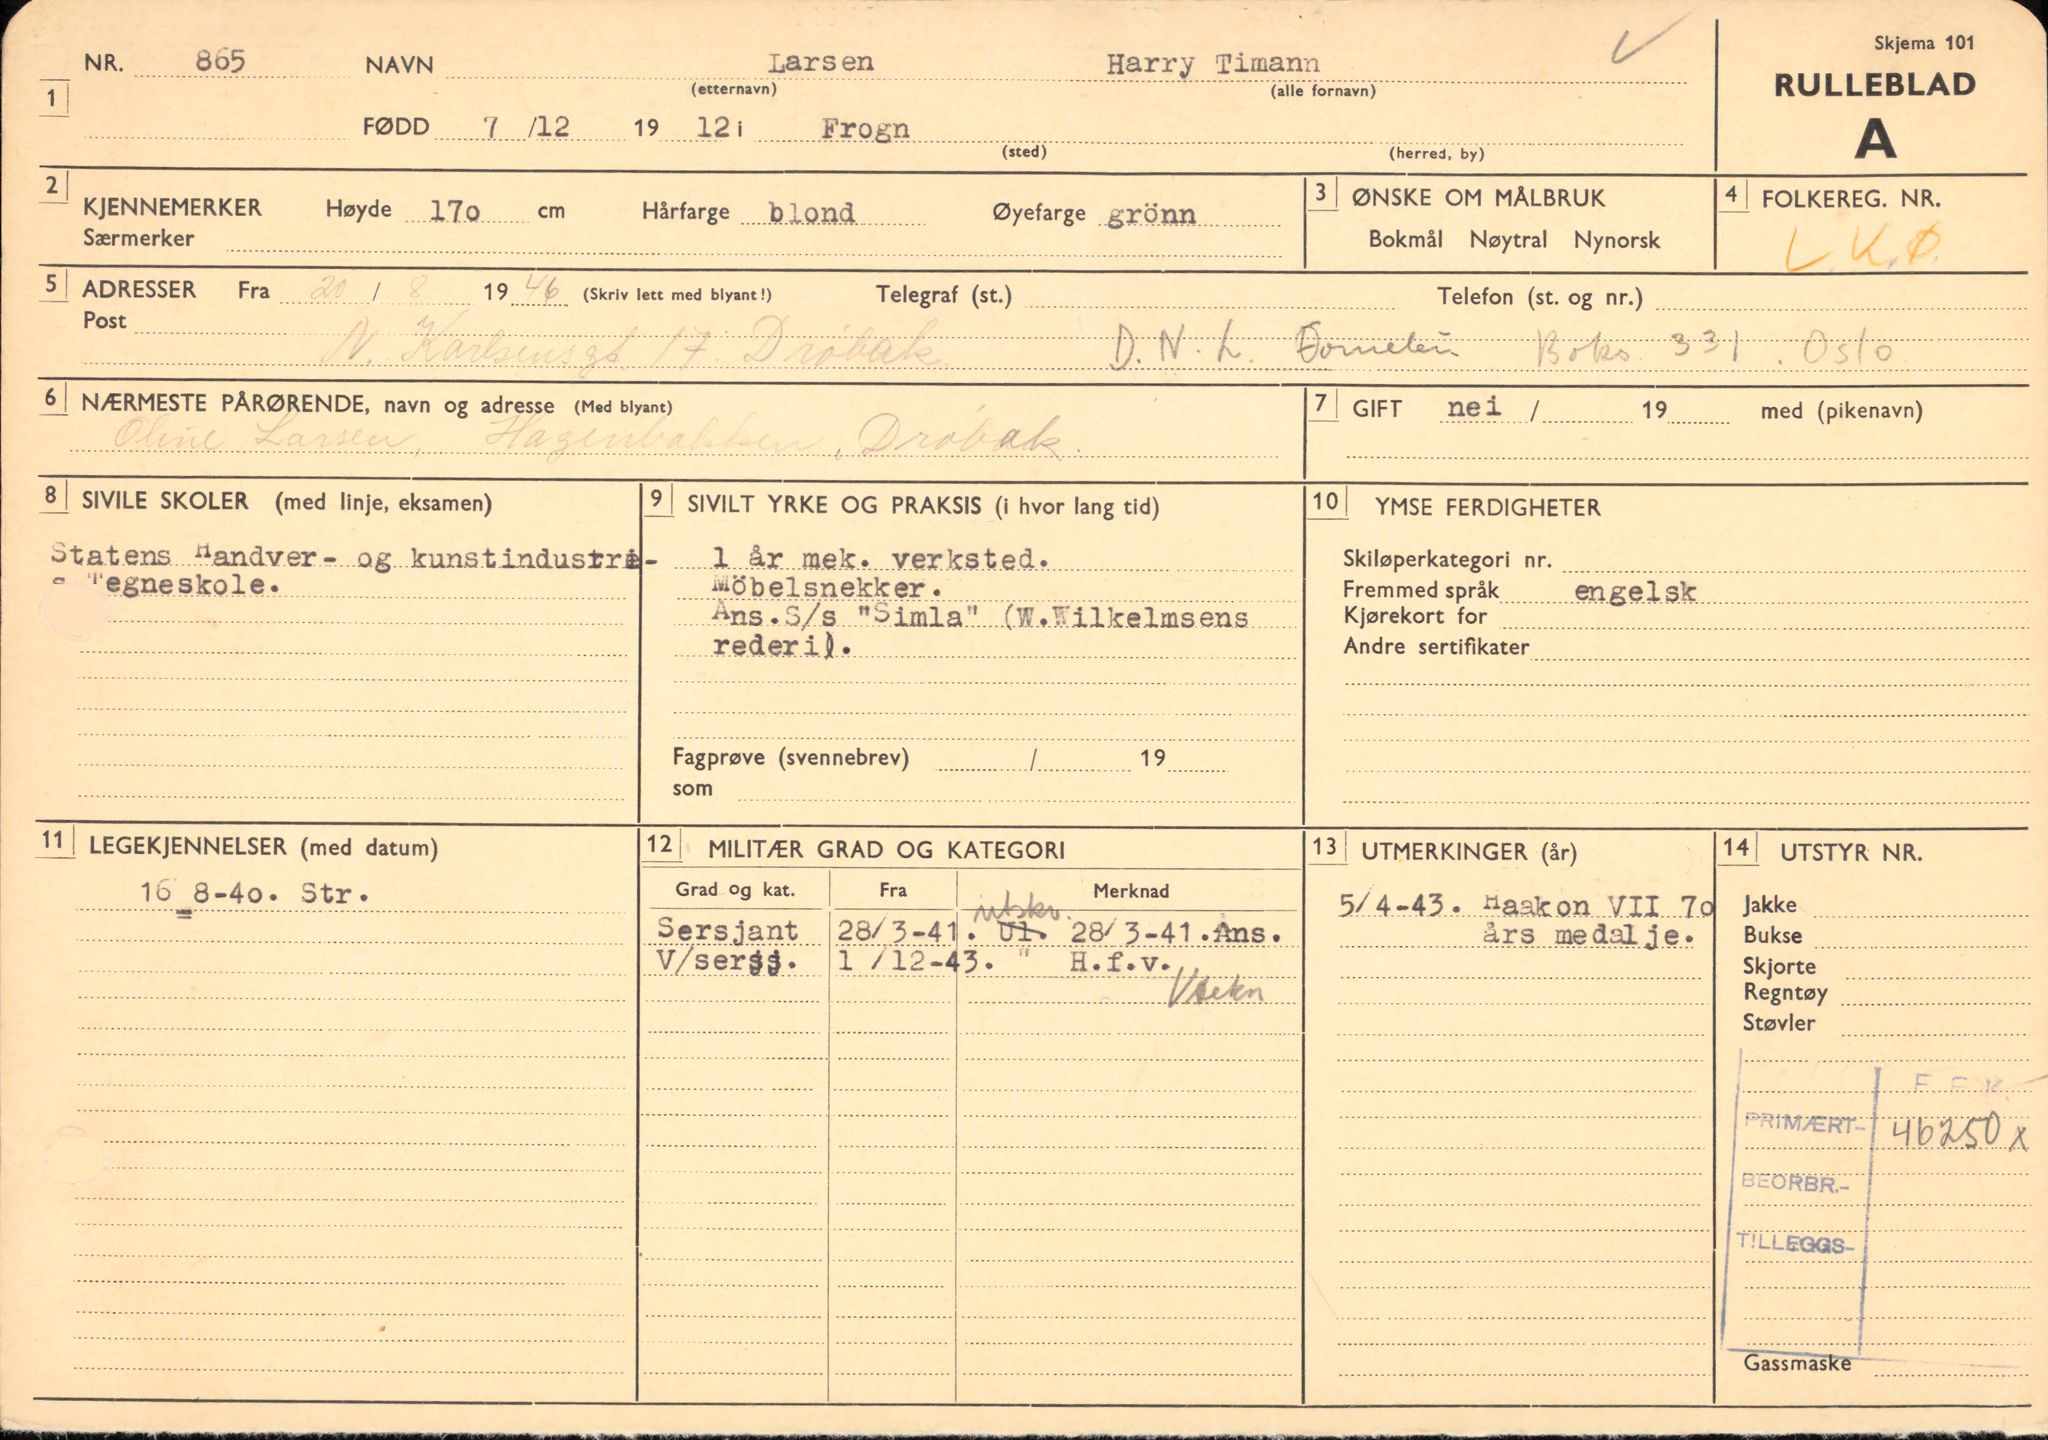 Skjema 101
RULLEBLAD
A
1 NR. 865 NAVN Larsen Harry Timann
(etternavn) (alle fornavn)
FØDD 7 /12 19 12 i Frogn
(sted) (herred, by)
2 KJENNEMERKER Høyde 170 cm Hårfarge blond Øyefarge grönn
Særmerker
3 ØNSKE OM MÅLBRUK
Bokmål Nøytral Nynorsk
4 FOLKEREG. NR.
L.K.Ø.
5 ADRESSER Fra 20 / 8 1946 (Skriv lett med blyant!) Telegraf (st.) Telefon (st. og nr.)
Post
N. Karlsensgt. 17 Drøbak D. N. L. Fornebu Boks 331. Oslo
6 NÆRMESTE PÅRØRENDE, navn og adresse (Med blyant)
Oline Larsen, Hagenbakken, Drøbak.
7 GIFT nei / 19 med (pikenavn)
8 SIVILE SKOLER (med linje, eksamen)
Statens Handver- og kunstindustri-
Tegneskole.
9 SIVILT YRKE OG PRAKSIS (i hvor lang tid)
1 år mek. verksted.
Möbelsnekker.
Ans.S/s "Simla" (W.Wilkelmsens
rederi).
Fagprøve (svennebrev) / 19
som
10 YMSE FERDIGHETER
Skiløperkategori nr.
Fremmed språk engelsk
Kjørekort for
Andre sertifikater
11 LEGEKJENNELSER (med datum)
16 8-40. Str.
12 MILITÆR GRAD OG KATEGORI
Grad og kat. Fra Merknad
utskr.
Sersjant 28/3-41. Ul. 28/3-41.Ans.
V/sersj. 1 /12-43. " H.f.v.
Vtekn
13 UTMERKINGER (år)
5/4-43. Haakon VII 70
års medalje.
14 UTSTYR NR.
Jakke
Bukse
Skjorte
Regntøy
Støvler
F. F. K.
PRIMÆRT- 46250 x
BEORBR.-
TILLEGGS-
Gassmaske